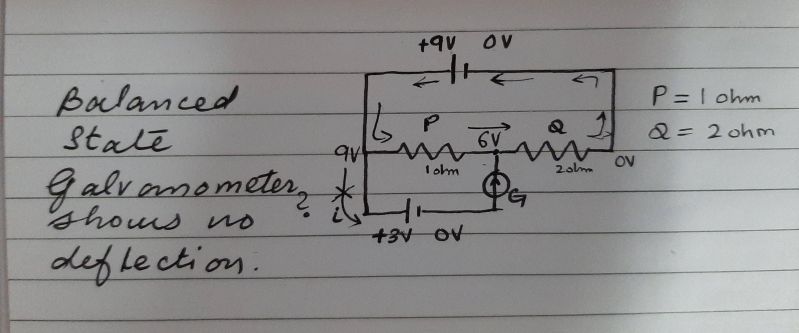 +9V 0V
Balanced
State
Galvanometer
shows no
deflection.
P = 1 ohm
Q = 2 ohm
P
6V
Q
9V
1ohm
2ohm
0V
?
i
G
+3V 0V